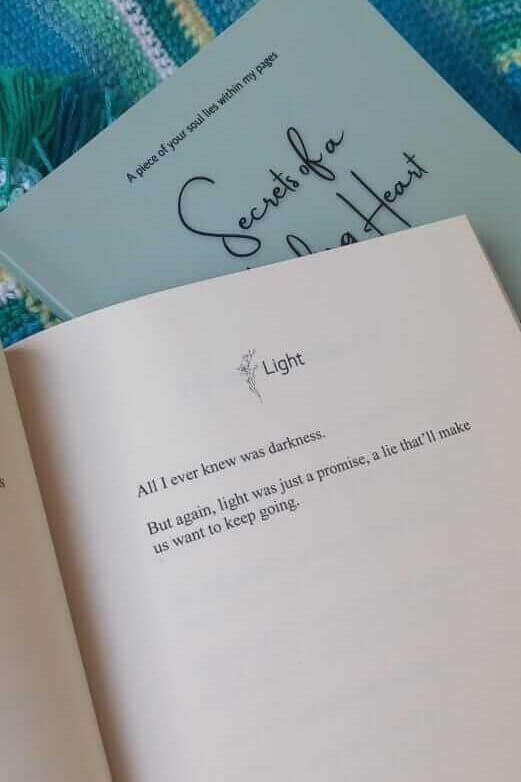 A piece of your soul lies within my pages
Secrets of a
Heart
Light
All I ever knew was darkness.
But again, light was just a promise, a lie that'll make
us want to keep going.